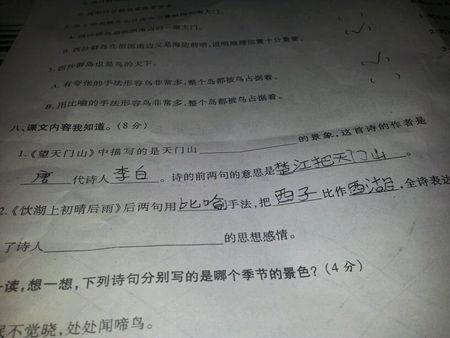 A.西沙群岛是祖国南边的一扇大门。
B.西沙群岛在祖国南边又是海防前哨,说明地理位置十分重要。
(✓)
3.西沙群岛也是鸟的天下。
A.有夸张的手法形容鸟非常多,整个岛都被鸟占据着。
( )
B.用比喻的手法形容鸟非常多,整个岛都被鸟占据着。
(✓)
八、课文内容我知道。(8分)
1.《望天门山》中描写的是天门山____的景象,这首诗的作者是
唐代诗人李白。诗的前两句的意思是楚江把天门山。
2.《饮湖上初晴后雨》后两句用比喻手法,把西子比作西湖,全诗表达
了诗人____的思想感情。
读,想一想,下列诗句分别写的是哪个季节的景色?(4分)
不觉晓,处处闻啼鸟。